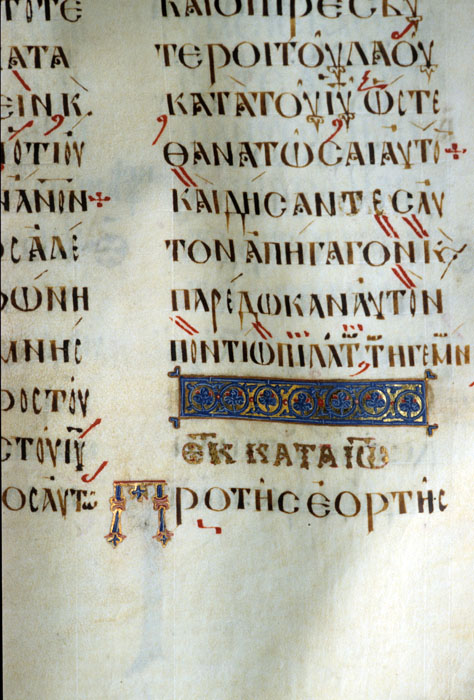 ΤΟΤΕ
ΑΤΑ
ΕΙΝ Κ,
ΟΤΙΟΥ
ΝΑΝΟΝ
ΟCΑΛΕ
ΦΩΝΗ
ΜΝΗC
ΟCΤΟΥ
CΤΟΥΙΥ
ΟCΑΥΤΩ
ΚΑΙΟΙΠΡΕCΒΥ
ΤΕΡΟΙΤΟΥΛΑΟΥ
ΚΑΤΑΤΟΥΙΥ ΩCΤΕ
ΘΑΝΑΤΩCΑΙΑΥΤΟ
ΚΑΙΔΗCΑΝΤΕCΑΥ
ΤΟΝΑΠΗΓΑΓΟΝΚ,
ΠΑΡΕΔΩΚΑΝΑΥΤΟΝ
ΠΟΝΤΙΩΠΙΛΑΤ,ΤΗΓΕΜΝ
ΕΚ ΚΑΤΑ ΙΩ
ΠΡΟΤΗCΕΟΡΤΗC